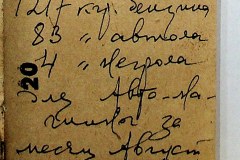 1217 кгр. бензина
83 " автола
4 " нигрола
20
Для Авто-ма-
за
месяц Август